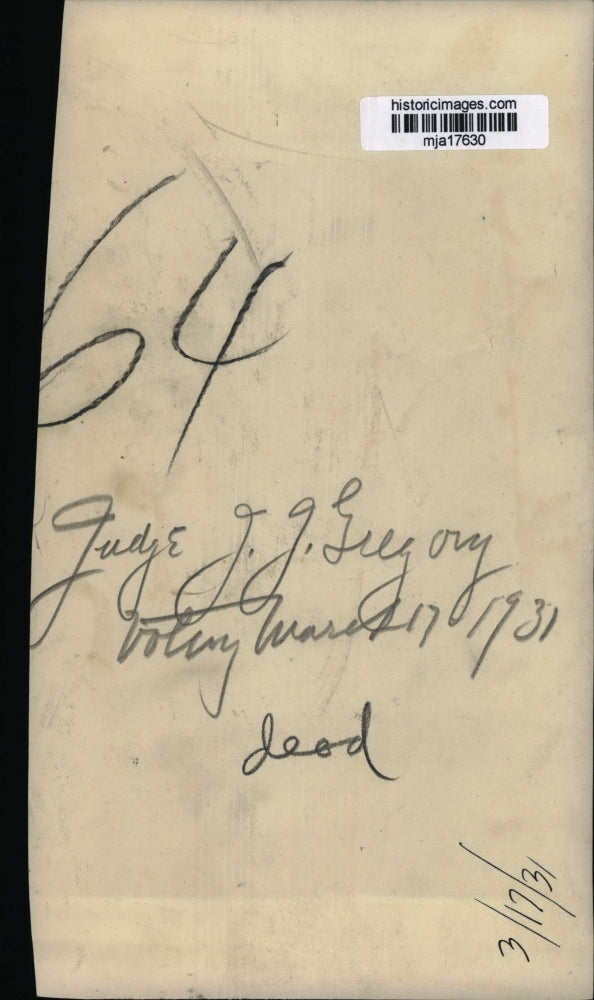 historicimages.com
mja17630
64
Judge J. J. Gregory
Voting March 17 1931
dead
3/17/31